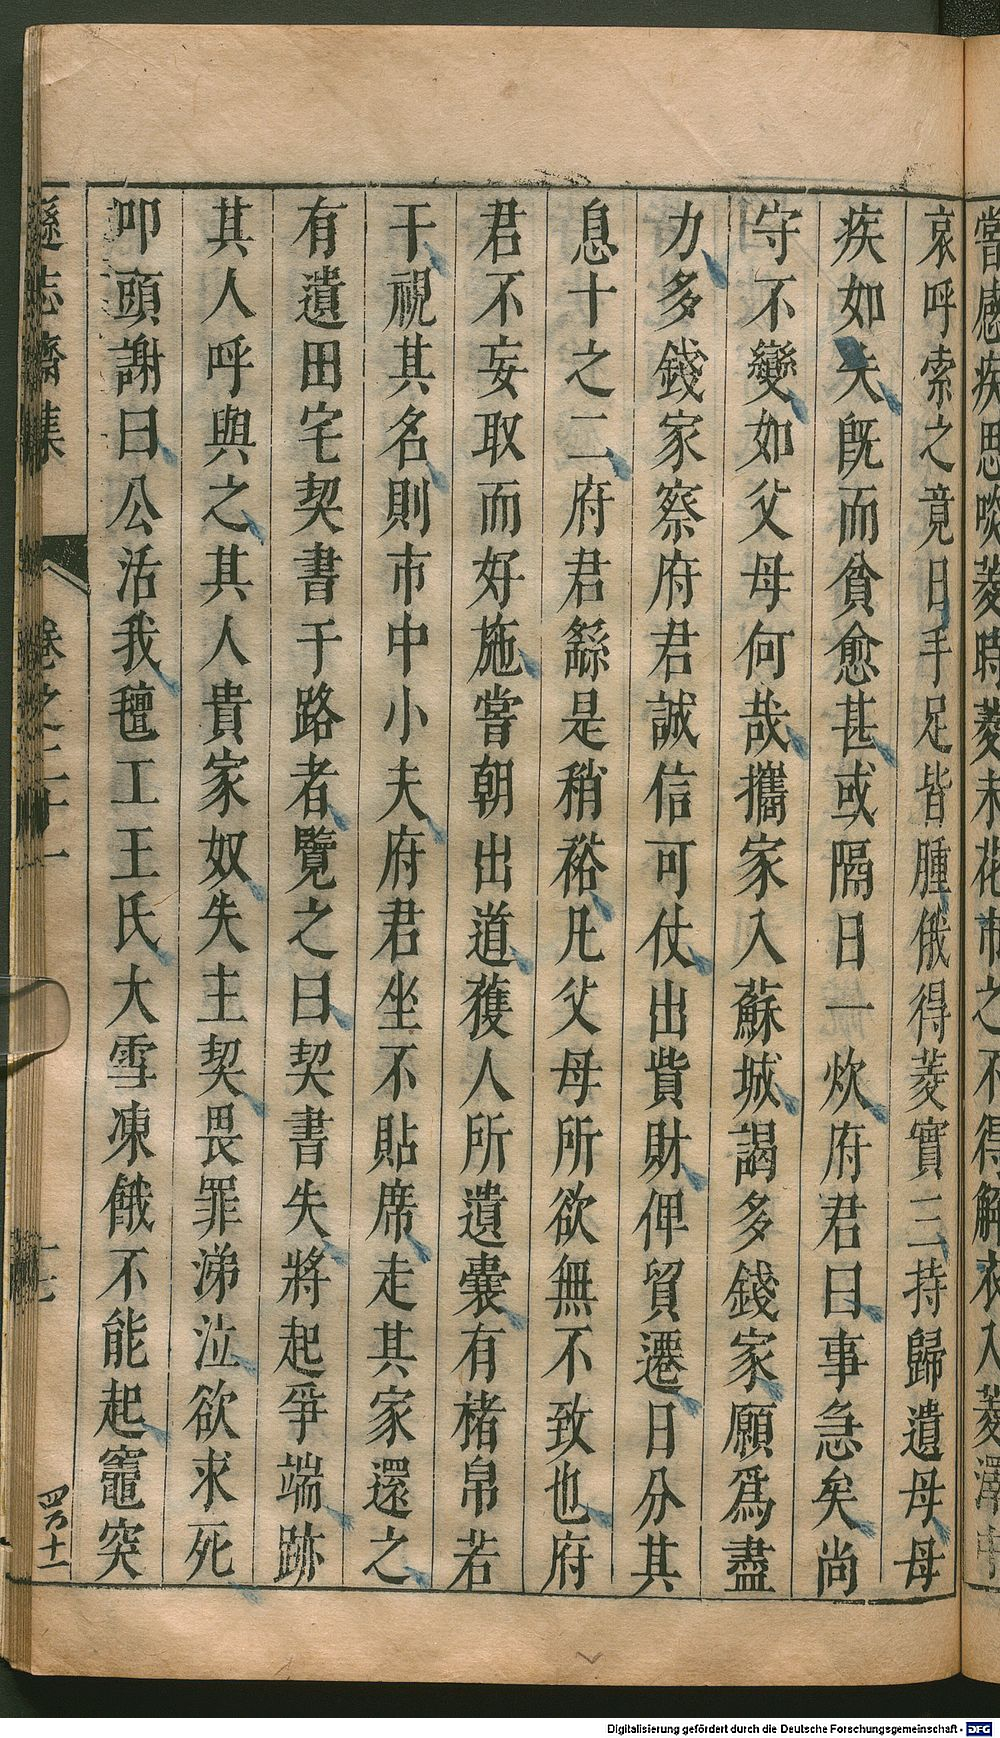 嘗感疾思啖菱時菱未花市之不得解衣入菱澤中
哀呼索之竟日手足皆腫俄得菱實三持歸遺母母
疾如失旣而貧愈甚或隔日一炊府君曰事急矣尚
守不變如父母何哉攜家入蘇城謁多錢家願爲盡
力多錢家察府君誠信可仗出貲財俾貿遷日分其
息十之二府君繇是稍裕凡父母所欲無不致也府
君不妄取而好施嘗朝出道獲人所遺囊有楮帛若
干視其名則市中小夫府君坐不貼席走其家還之
有遺田宅契書于路者覽之曰契書失將起爭端跡
其人呼與之其人貴家奴失主契畏罪涕泣欲求死
叩頭謝曰公活我氊工王氏大雪凍餓不能起竈突
遜志齋集 卷之二十一 十七
Digitalisierung gefördert durch die Deutsche Forschungsgemeinschaft - DFG